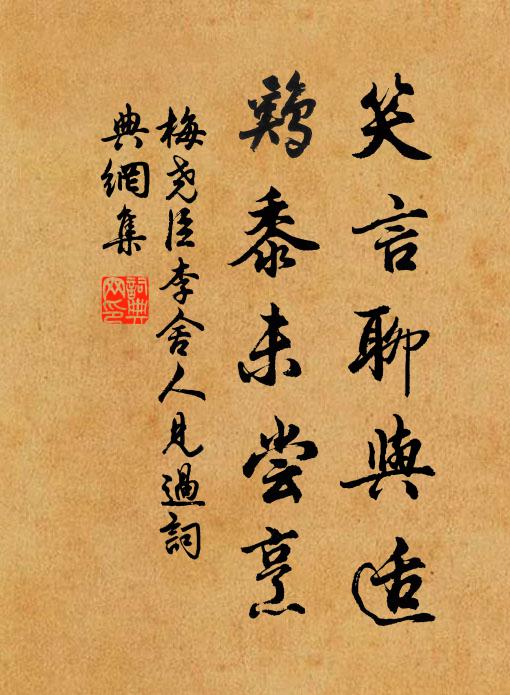 笑言聊與适
鷄黍未尝烹
梅尧臣李舍人見過詞
典網集
詞典网印